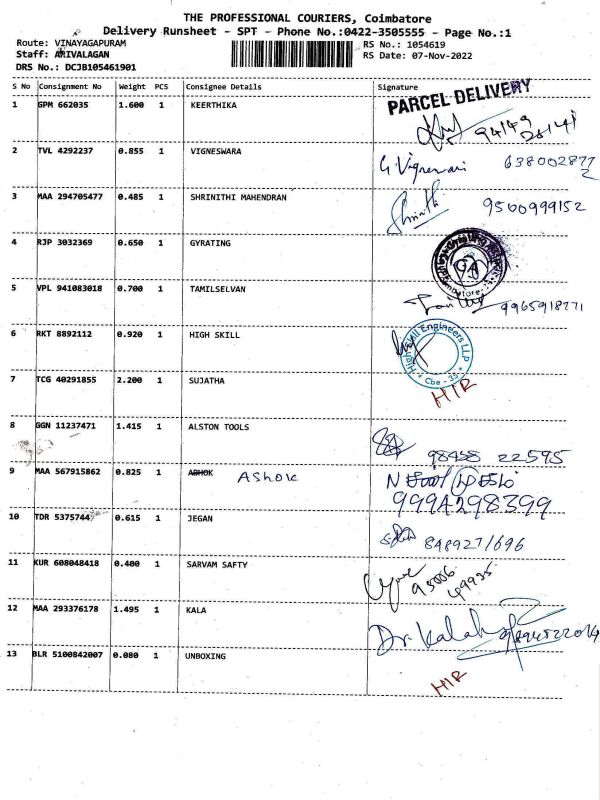 THE PROFESSIONAL COURIERS, Coimbatore
Delivery Runsheet - SPT - Phone No.:0422-3505555 - Page No.:1
Route: VINAYAGAPURAM
Staff: ARIVALAGAN
DRS No.: DCJB105461901
RS No.: 1054619
RS Date: 07-Nov-2022
S No Consignment No Weight PCS Consignee Details Signature
PARCEL DELIVERY
1 GPM 662035 1.600 1 KEERTHIKA
94149
2 TVL 4292237 0.855 1 VIGNESWARA
638002877
2
3 MAA 294705477 0.485 1 SHRINITHI MAHENDRAN Shrinithi 9500999152
4 RJP 3032369 0.650 1 GYRATING
5 VPL 941083018 0.700 1 TAMILSELVAN 9965918271
6 RKT 8892112 0.920 1 HIGH SKILL High Skill Engineers LLP
* Cbe - 35 *
7 TCG 40291855 2.200 1 SUJATHA HIR
8 GGN 11237471 1.415 1 ALSTON TOOLS 98438 22595
9 MAA 567915862 0.825 1 ASHOK ASHOK
999A298399
10 TDR 5375744 0.615 1 JEGAN 8489271696
11 KUR 608048418 0.400 1 SARVAM SAFTY 95006
49935
12 MAA 293376178 1.495 1 KALA Dr. Kala
13 BLR 5100842007 0.080 1 UNBOXING HIR